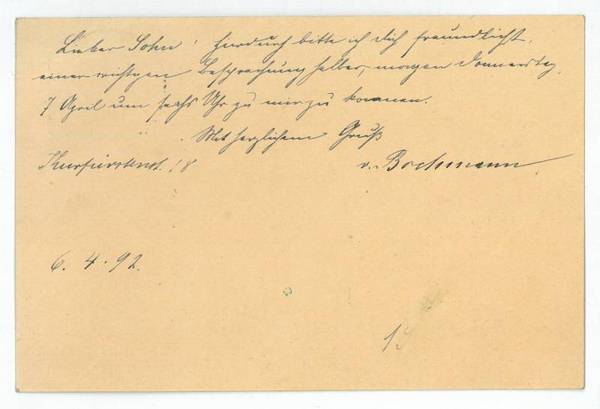 Lieber Sohn! Hierdurch bitte ich Dich freundlichst,
einer wichtigen Besprechung halber, morgen Donnerstag
7 April um sechs Uhr zu mir zu kommen.
Mit herzlichem Gruß
Kurfürstenst. 18 v. Bochmann
6. 4. 92.